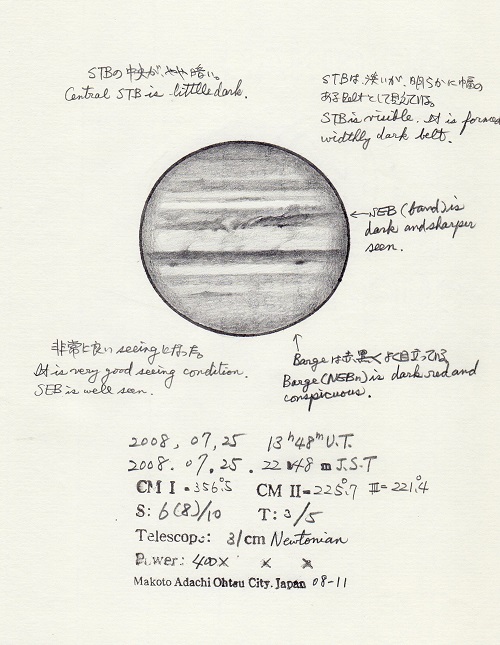 STBの中央が、やや暗い。
Central STB is little dark.
STBは、淡いが、明らかに幅の
あるbeltとして見えている。
STB is visible. It is formed
widthly dark belt.
NEB (band) is
dark and sharper
seen.
非常に良いseeingになった。
It is very good seeing condition.
SEB is well seen.
Bargeは赤黒くよく目立っている
Barge (NEBn) is dark red and
conspicuous.
2008, 07, 25 13h48m U.T.
2008. 07. 25. 22 h48 m J.S.T
CM I = 356°.5 CM II = 225°.7 III = 221°.4
S: 6(8)/10 T: 3/5
Telescope: 31cm Newtonian
Power: 400× × ×
Makoto Adachi Ohtsu City. Japan 08-11